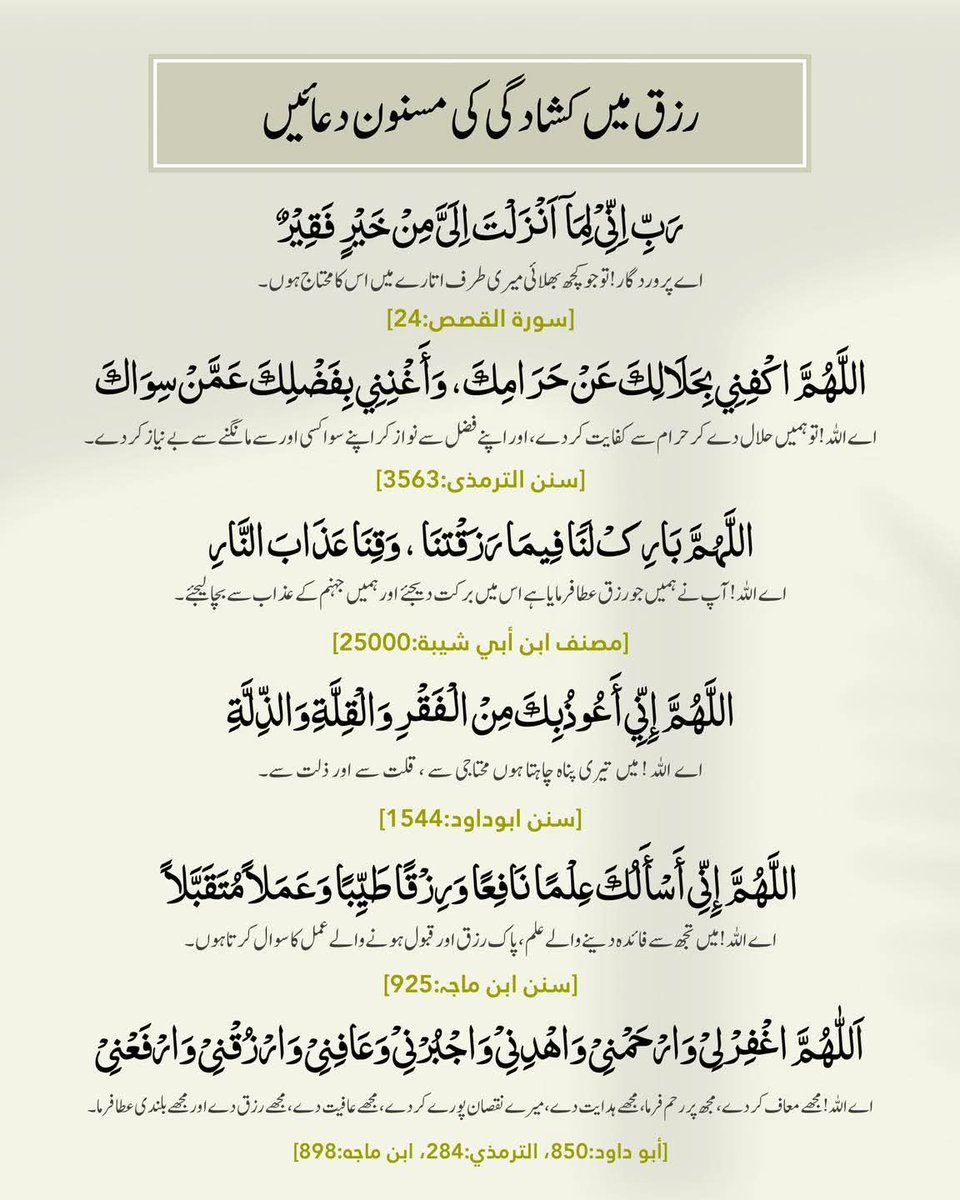 رزق میں کشادگی کی مسنون دعائیں
رَبِّ اِنِّیْ لِمَاۤ اَنْزَلْتَ اِلَیَّ مِنْ خَیْرٍ فَقِیْرٌ
اے پروردگار! تو جو کچھ بھلائی میری طرف اتارے میں اس کا محتاج ہوں۔
[سورة القصص:24]
اللَّهُمَّ اكْفِنِي بِحَلَالِكَ عَنْ حَرَامِكَ، وَأَغْنِنِي بِفَضْلِكَ عَمَّنْ سِوَاكَ
اے اللہ! تو ہمیں حلال دے کر حرام سے کفایت کر دے، اور اپنے فضل سے نواز کر اپنے سوا کسی اور سے مانگنے سے بے نیاز کر دے۔
[سنن الترمذی:3563]
اللَّهُمَّ بَارِكْ لَنَا فِيمَا رَزَقْتَنَا ، وَقِنَا عَذَابَ النَّارِ
اے اللہ! آپ نے ہمیں جو رزق عطا فرمایا ہے اس میں برکت دیجئے اور ہمیں جہنم کے عذاب سے بچا لیجئے۔
[مصنف ابن أبي شيبة:25000]
اللَّهُمَّ إِنِّي أَعُوذُ بِكَ مِنْ الْفَقْرِ وَالْقِلَّةِ وَالذِّلَّةِ
اے اللہ! میں تیری پناہ چاہتا ہوں محتاجی سے ، قلت سے اور ذلت سے۔
[سنن ابوداود:1544]
اللَّهُمَّ إِنِّي أَسْأَلُكَ عِلْمًا نَافِعًا وَرِزْقًا طَيِّبًا وَعَمَلاً مُتَقَبَّلاً
اے اللہ! میں تجھ سے فائدہ دینے والے علم، پاک رزق اور قبول ہونے والے عمل کا سوال کرتا ہوں۔
[سنن ابن ماجہ:925]
اَللّٰهُمَّ اغْفِرْ لِیْ وَارْحَمْنِیْ وَاهْدِنِیْ وَاجْبُرْنِیْ وَعَافِنِیْ وَارْزُقْنِیْ وَارْفَعْنِیْ
اے اللہ! مجھے معاف کر دے، مجھ پر رحم فرما، مجھے ہدایت دے، میرے نقصان پورے کر دے، مجھے عافیت دے، مجھے رزق دے اور مجھے بلندی عطا فرما۔
[أبو داود:850، الترمذي:284، ابن ماجه:898]